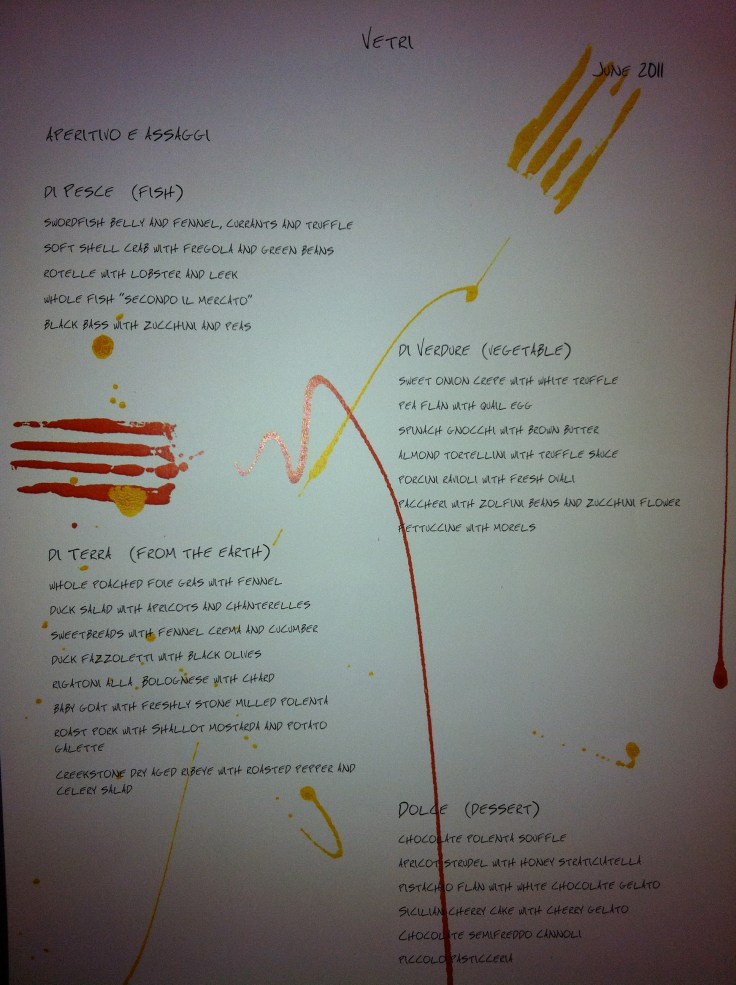 VETRI
JUNE 2011
APERITIVO E ASSAGGI
DI PESCE (FISH)
SWORDFISH BELLY AND FENNEL, CURRANTS AND TRUFFLE
SOFT SHELL CRAB WITH FREGOLA AND GREEN BEANS
ROTELLE WITH LOBSTER AND LEEK
WHOLE FISH "SECONDO IL MERCATO"
BLACK BASS WITH ZUCCHINI AND PEAS
DI VERDURE (VEGETABLE)
SWEET ONION CREPE WITH WHITE TRUFFLE
PEA FLAN WITH QUAIL EGG
SPINACH GNOCCHI WITH BROWN BUTTER
ALMOND TORTELLINI WITH TRUFFLE SAUCE
PORCINI RAVIOLI WITH FRESH OVALI
PACCHERI WITH ZOLFINI BEANS AND ZUCCHINI FLOWER
FETTUCCINE WITH MORELS
DI TERRA (FROM THE EARTH)
WHOLE POACHED FOIE GRAS WITH FENNEL
DUCK SALAD WITH APRICOTS AND CHANTERELLES
SWEETBREADS WITH FENNEL CREMA AND CUCUMBER
DUCK FAZZOLETTI WITH BLACK OLIVES
RIGATONI ALLA BOLOGNESE WITH CHARD
BABY GOAT WITH FRESHLY STONE MILLED POLENTA
ROAST PORK WITH SHALLOT MOSTARDA AND POTATO
GALETTE
CREEKSTONE DRY AGED RIBEYE WITH ROASTED PEPPER AND
CELERY SALAD
DOLCE (DESSERT)
CHOCOLATE POLENTA SOUFFLE
APRICOT STRUDEL WITH HONEY STRATICIATELLA
PISTACHIO FLAN WITH WHITE CHOCOLATE GELATO
SICILIAN CHERRY CAKE WITH CHERRY GELATO
CHOCOLATE SEMIFREDDO CANNOLI
PICCOLO PASTICCERIA